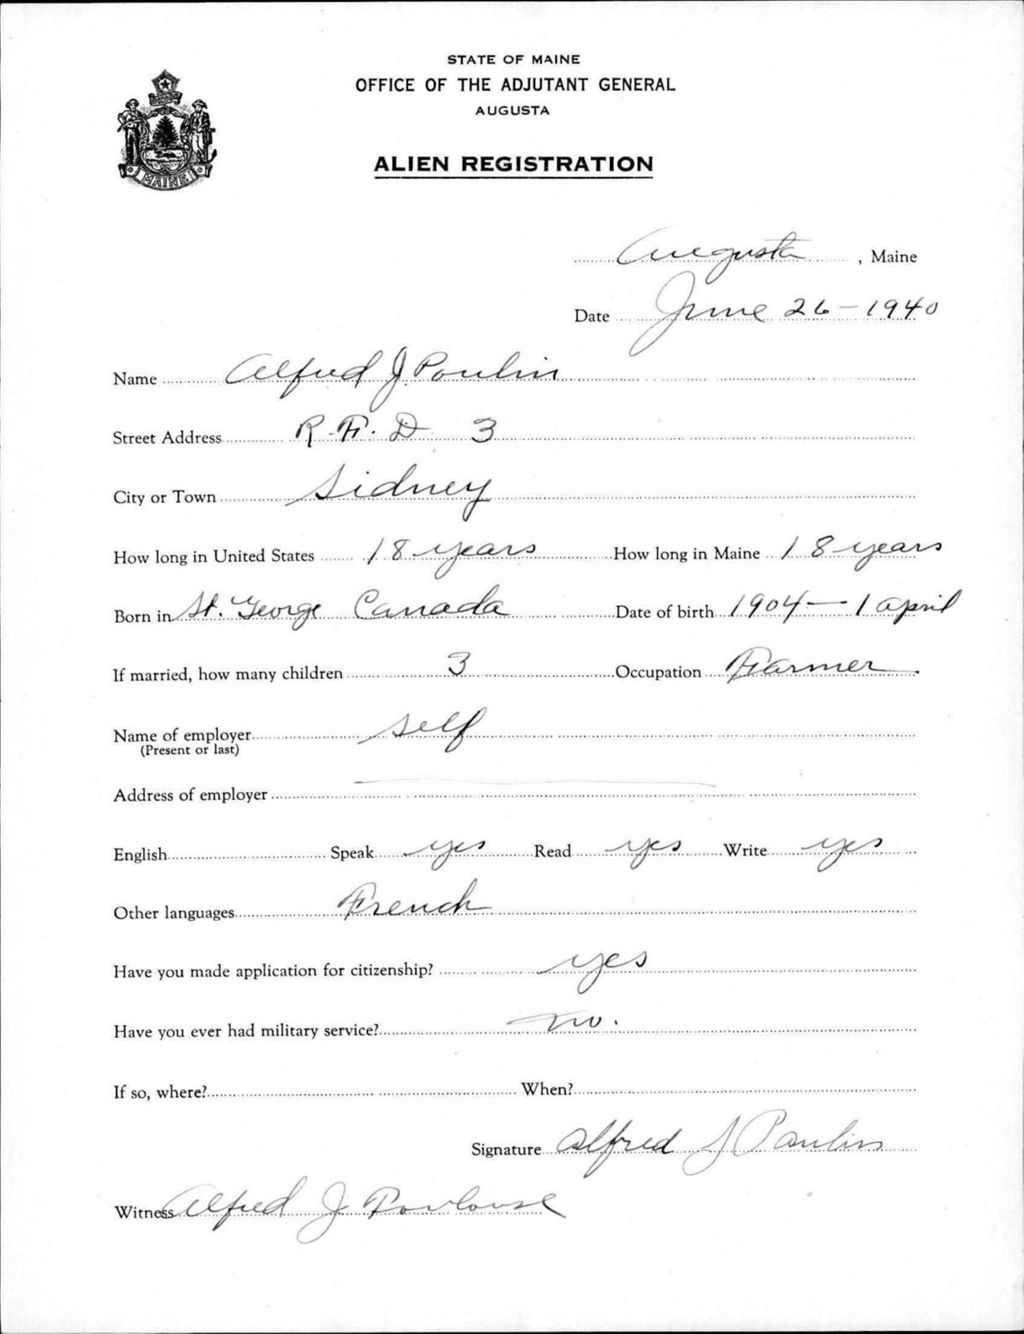 STATE OF MAINE
OFFICE OF THE ADJUTANT GENERAL
AUGUSTA
ALIEN REGISTRATION
MAINE
Augusta, Maine
Date June 26-1940
Name Alfred J Poulin
Street Address R.F.D 3
City or Town Sidney
How long in United States 18 years How long in Maine 18 years
Born in St. George Canada Date of birth 1904 - 1 april
If married, how many children 3 Occupation Farmer
Name of employer self
(Present or last)
Address of employer
English Speak yes Read yes Write yes
Other languages French
Have you made application for citizenship? yes
Have you ever had military service? no.
If so, where? When?
Signature Alfred J Poulin
Witness Alfred J